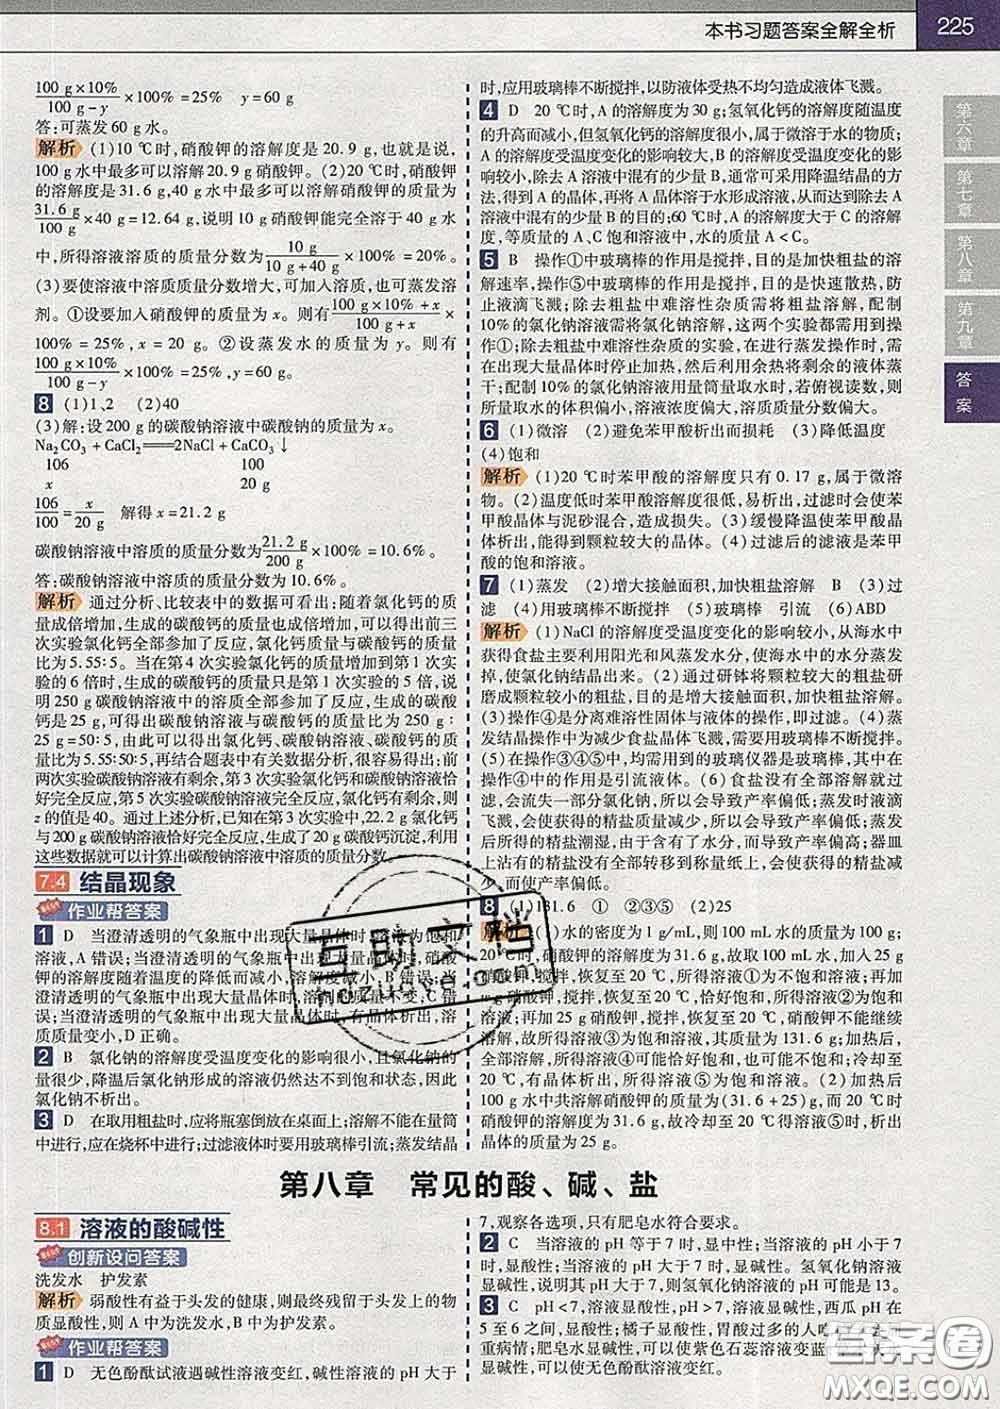 本书习题答案全解全析
225
第六章
第七章
第八章
第九章
答案
100 g×10%/100 g-y×100%=25% y=60 g
答:可蒸发60 g水。
解析 (1)10 ℃时,硝酸钾的溶解度是20.9 g,也就是说,
100 g水中最多可以溶解20.9 g硝酸钾。(2)20 ℃时,硝酸
钾的溶解度是31.6 g,40 g水中最多可以溶解硝酸钾的质量为
31.6 g/100 g×40 g=12.64 g,说明10 g硝酸钾能完全溶于40 g水
中,所得溶液溶质的质量分数为10 g/10 g+40 g×100%=20%。
(3)要使溶液中溶质质量分数增大,可加入溶质,也可蒸发溶
剂。①设要加入硝酸钾的质量为x。则有100 g×10%+x/100 g+x×
100%=25%,x=20 g。②设蒸发水的质量为y。则有
100 g×10%/100 g-y×100%=25%,y=60 g。
8 (1)1、2 (2)40
(3)解:设200 g的碳酸钠溶液中碳酸钠的质量为x。
Na₂CO₃+CaCl₂══2NaCl+CaCO₃↓
106 100
x 20 g
106/100=x/20 g 解得x=21.2 g
碳酸钠溶液中溶质的质量分数为21.2 g/200 g×100%=10.6%。
答:碳酸钠溶液中溶质的质量分数为10.6%。
解析 通过分析、比较表中的数据可看出:随着氯化钙的质
量成倍增加,生成的碳酸钙的质量也成倍增加,可以得出前三
次实验氯化钙全部参加了反应,氯化钙质量与碳酸钙的质量
比为5.55∶5。当在第4次实验氯化钙的质量增加到第1次实
验的6倍时,生成的碳酸钙的质量只是第1次实验的5倍,说
明250 g碳酸钠溶液中的溶质全部参加了反应,生成的碳酸
钙是25 g,可得出碳酸钠溶液与碳酸钙的质量比为250 g∶
25 g=50∶5,由此可以得出氯化钙、碳酸钠溶液、碳酸钙的质
量比为5.55∶50∶5,再结合题表中有关数据分析,很容易得出:
前两次实验碳酸钠溶液有剩余,第3次实验氯化钙和碳酸钠恰
好完全反应,第5次实验碳酸钠溶液完全反应,氯化钙有剩余,则
z的值是40。通过上述分析,已知在第3次实验中,22.2 g氯化钙
与200 g碳酸钠溶液恰好完全反应,生成了20 g碳酸钙沉淀,利用
这些数据就可以计算出碳酸钠溶液中溶质的质量分数。
7.4 结晶现象
作业帮答案
1 D 当澄清透明的气象瓶中出现大量晶体时,溶液为饱和
溶液,A错误;当澄清透明的气象瓶中出现大量晶体时,硝酸
钾的溶解度随着温度的降低而减小,溶解度减小,B错误;当
澄清透明的气象瓶中出现大量晶体时,溶剂质量不变,C错
误;当澄清透明的气象瓶中出现大量晶体时,有晶体析出,溶
质质量变小,D正确。
2 B 氯化钠的溶解度受温度变化的影响很小,且氯化钠的
量很少,降温后氯化钠形成的溶液仍然达不到饱和状态,因此
氯化钠不析出。
3 D 在取用粗盐时,应将瓶塞倒放在桌面上;溶解不能在量筒
中进行,应在烧杯中进行;过滤液体时要用玻璃棒引流;蒸发结晶
时,应用玻璃棒不断搅拌,以防液体受热不均匀造成液体飞溅。
4 D 20 ℃时,A的溶解度为30 g;氢氧化钙的溶解度随温度
的升高而减小,但氢氧化钙的溶解度很小,属于微溶于水的物质;
A的溶解度受温度变化的影响较大,B的溶解度受温度变化的影响
较小,除去A溶液中混有的少量B,通常可采用降温结晶的方
法,得到A的晶体,再将A晶体溶于水形成溶液,从而达到除去A
溶液中混有的少量B的目的;60 ℃时,A的溶解度大于C的溶解
度,等质量的A、C饱和溶液中,水的质量A<C。
5 B 操作①中玻璃棒的作用是搅拌,目的是加快粗盐的溶
解速率,操作⑤中玻璃棒的作用是搅拌,目的是快速散热,防止
液滴飞溅;除去粗盐中难溶性杂质需将粗盐溶解,配制
10%的氯化钠溶液需将氯化钠溶解,两个实验都需用到操
作①;除去难溶性杂质的实验,在进行蒸发操作时,需
在出现大量晶体时停止加热,然后利用余热将剩余的液体蒸
干;配制10%的氯化钠溶液用量筒量取水时,若俯视读数,则
所量取水的体积偏小,溶液浓度偏大,溶质质量分数偏大。
6 (1)微溶 (2)避免苯甲酸析出而损耗 (3)降低温度
(4)饱和
解析 (1)20 ℃时苯甲酸的溶解度只有0.17 g,属于微溶
物。(2)温度低时苯甲酸溶解度很低,易析出,过滤时会使苯
甲酸晶体与泥砂混合,造成损失。(3)缓慢降温使苯甲酸晶
体析出,能得到颗粒较大的晶体。(4)过滤后的滤液是苯甲
酸的饱和溶液。
7 (1)蒸发 (2)增大接触面积,加快粗盐溶解 B (3)过
滤 (4)用玻璃棒不断搅拌 (5)玻璃棒 引流 (6)ABD
解析 (1)NaCl的溶解度受温度变化的影响较小,从海水中
获得食盐主要利用阳光和风蒸发水分,使海水中的水分蒸发
掉,使氯化钠结晶出来。(2)通过研钵将颗粒较大的粗盐研
磨成颗粒较小的粗盐,目的是增大接触面积,加快粗盐溶解。
(3)操作④是分离难溶性固体与液体的操作,即过滤。(4)蒸
发结晶操作中为减少食盐晶体飞溅,需要用玻璃棒不断搅拌。
(5)在操作②③④⑤中,均需用到的玻璃仪器是玻璃棒,其中在
操作④中的作用是引流液体。(6)食盐没有全部溶解就过滤,
会流失一部分氯化钠,所以会导致产率偏低;蒸发时液滴
飞溅,会使得到的精盐质量减少,所以会导致产率偏低;蒸
发后所得的精盐潮湿,由于含有了水分,而使产率偏高;器皿
上沾有的精盐没有全部转移到称量纸上,会使得到的精盐减
少,而使产率偏低。
8 (1)131.6 ① ②③⑤ (2)25
解析 (1)水的密度为1 g/mL,则100 mL水的质量为100 g;
20 ℃时,硝酸钾的溶解度为31.6 g,故取100 mL水,加入25 g
硝酸钾,搅拌,恢复至20 ℃,所得溶液①为不饱和溶液;再加
g硝酸钾,搅拌,恢复至20 ℃,恰好饱和,所得溶液②为饱和
溶液;再加25 g硝酸钾,搅拌,恢复至20 ℃,硝酸钾不能继续
溶解,所得溶液③为饱和溶液,其质量为131.6 g;加热后,
全部溶解,所得溶液④可能恰好饱和,也可能不饱和;冷却至
20 ℃,有晶体析出,所得溶液⑤为饱和溶液。(2)加热后
100 g水中共溶解硝酸钾的质量为(31.6+25) g,20 ℃时
硝酸钾的溶解度为31.6 g,故冷却至20 ℃时,析出
晶体的质量为25 g。
互助文档
hdzuoye.com
第八章 常见的酸、碱、盐
8.1 溶液的酸碱性
创新设问答案
洗发水 护发素
解析 弱酸性有益于头发的健康,则最终残留于头发上的物
质显酸性,则A中为洗发水,B中为护发素。
作业帮答案
1 D 无色酚酞试液遇碱性溶液变红,碱性溶液的pH大于
7,观察各选项,只有肥皂水符合要求。
2 C 当溶液的pH等于7时,显中性;当溶液的pH小于7
时,显酸性;当溶液的pH大于7时,显碱性。氢氧化钠溶液
显碱性,pH大于7,则氢氧化钠溶液的pH可能是13。
3 C pH<7,溶液显酸性,pH>7,溶液显碱性,西瓜pH在
5至6之间,显酸性;橘子显酸性,胃酸过多的人吃
重病情;肥皂水显碱性,可以使紫色石蕊溶液变蓝
显碱性,可以使无色酚酞溶液变红。
答案圈
MXQE.COM